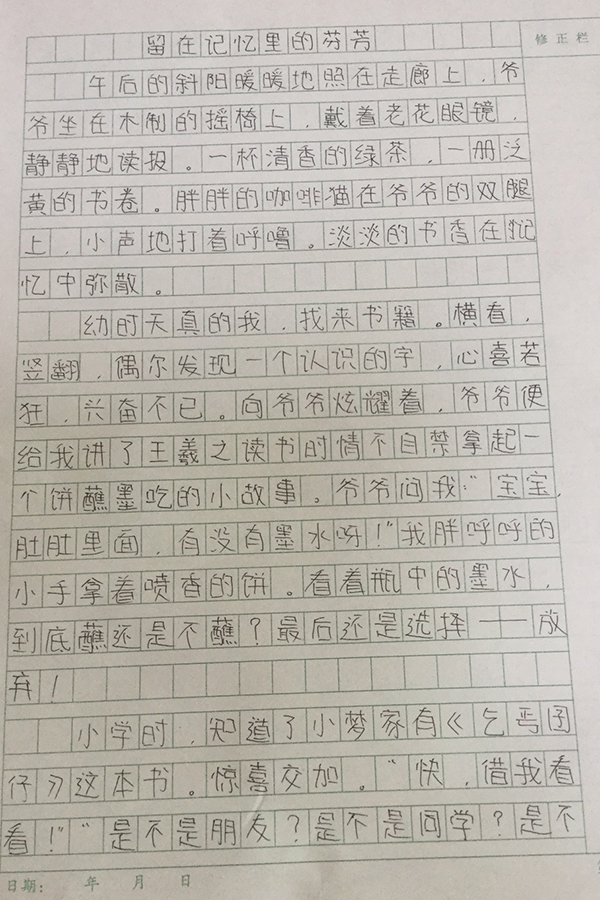 留在记忆里的芬芳
修正栏
午后的斜阳暖暖地照在走廊上，爷
爷坐在木制的摇椅上，戴着老花眼镜，
静静地读报。一杯清香的绿茶，一册泛
黄的书卷。胖胖的咖啡猫在爷爷的双腿
上，小声地打着呼噜。淡淡的书香在记
忆中弥散。
幼时天真的我，找来书籍。横看，
竖翻，偶尔发现一个认识的字，心喜若
狂，兴奋不已。向爷爷炫耀着，爷爷便
给我讲了王羲之读书时情不自禁拿起一
个饼蘸墨吃的小故事。爷爷问我："宝宝，
肚肚里面，有没有墨水呀！"我胖呼呼的
小手拿着喷香的饼。看着瓶中的墨水，
到底蘸还是不蘸？最后还是选择——放
弃！
小学时，知道了小梦家有《乞丐囝
仔》这本书。惊喜交加。"快，借我看
看！""是不是朋友？是不是同学？是不
日期： 年 月 日